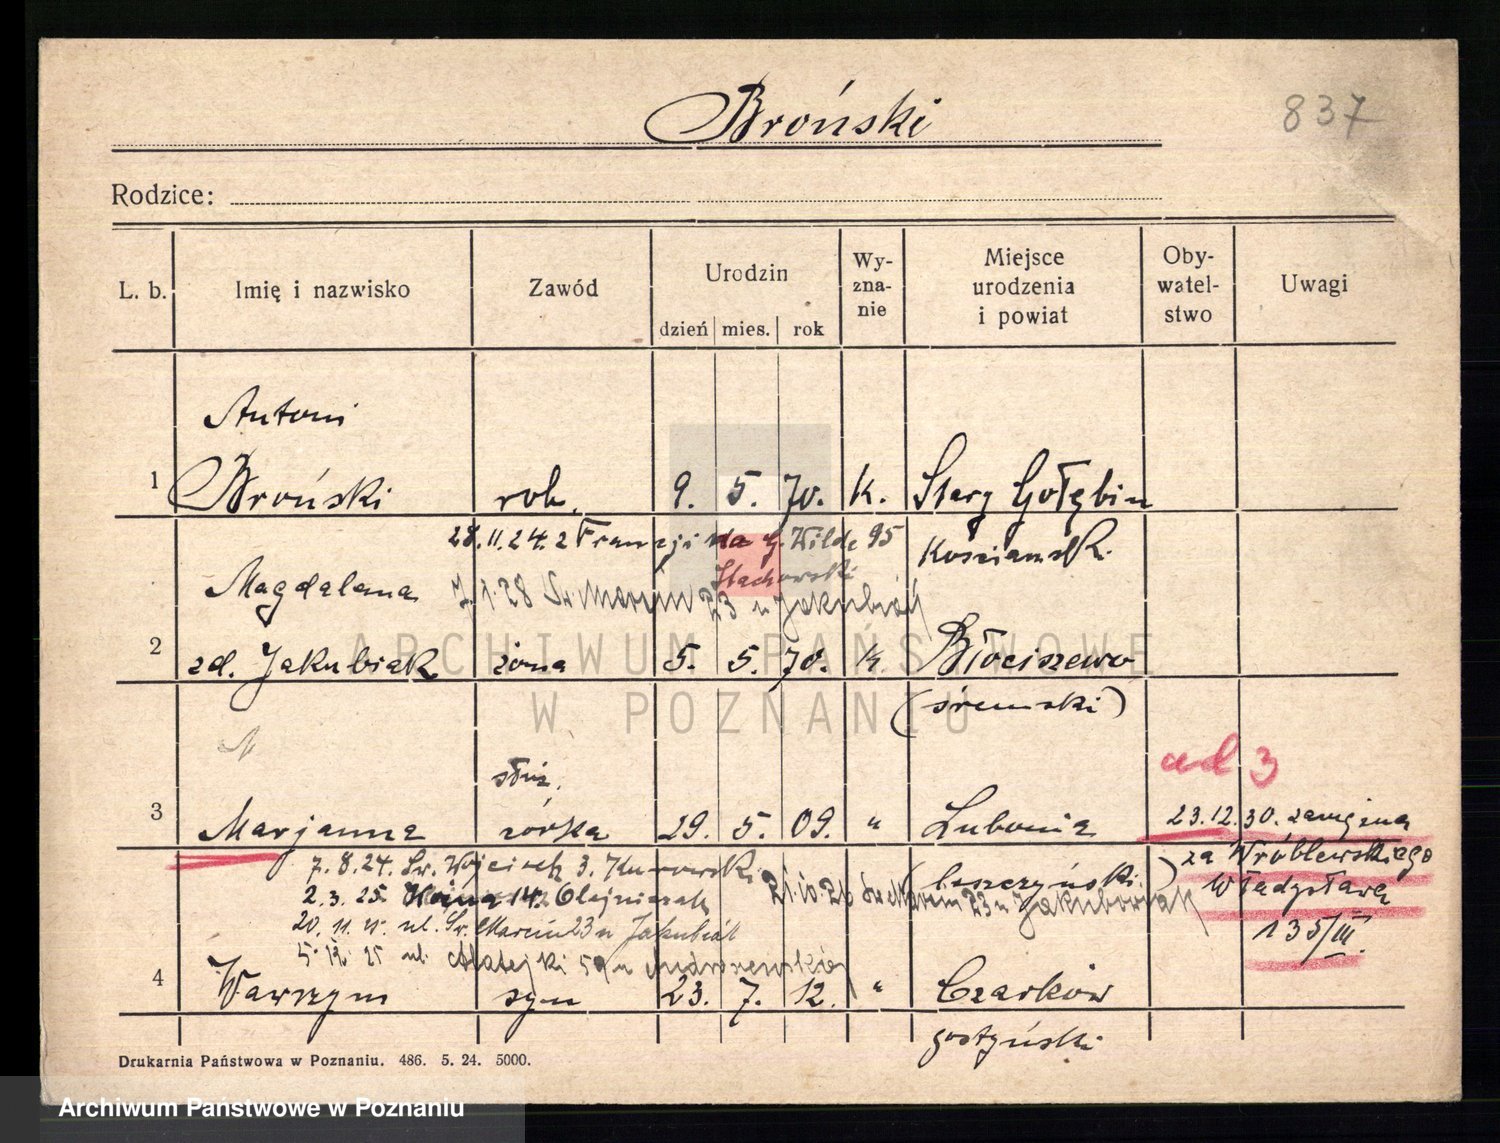 Broński
837
Rodzice:
L. b.
Imię i nazwisko
Zawód
Urodzin
dzień mies. rok
Wy-
zna-
nie
Miejsce
urodzenia
i powiat
Oby-
watel-
stwo
Uwagi
Antoni
1 Broński rob. 9. 5. 70. K. Stary Gołębin
28.11.24. z Francji G. Wilde 95
Stachowski
Kościańsk.
Magdalena
7.1.28 Św. Marcin 23 u Jakubiak
2 zd. Jakubiak żona 5. 5. 70. K. Błociszewo
(śremski)
ARCHIWUM PAŃSTWOWE
W POZNANIU
służ.
ad 3
3 Marjanna żówka 29. 5. 09. " Lubonia
23.12.30. zamężna
za Wróblewskiego
Władysława
135/III.
7.8.24. Św. Wojciech 3. Kurowski
(leszczyński)
2.3.25. 14. Olejniczak
21.10.26 Św. Marcin 23 u Jakubowiak
20.11.25. ul. Św. Marcin 23 u Jakubiak
5.12.25 ul. Matejki 59 u
4 Wawrzyn syn 23. 7. 12. " Czarków
gostyński
Drukarnia Państwowa w Poznaniu. 486. 5. 24. 5000.
Archiwum Państwowe w Poznaniu